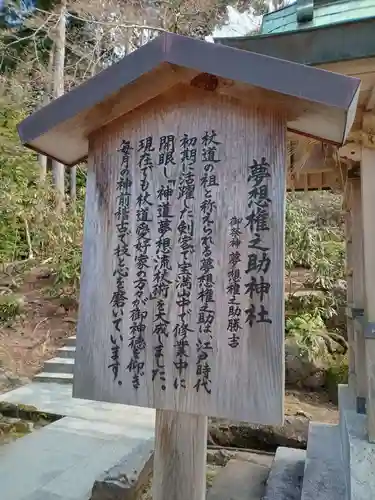 夢想権之助神社
御祭神 夢想権之助勝吉
杖道の祖と称えられる夢想権之助は、江戸時代
初期に活躍した剣客で宝満山中で修業中に
開眼し「神道夢想流杖術」を大成しました。
現在でも杖道愛好家の方が御神徳を仰ぎ
毎月の神前稽古で技と心を磨いています。